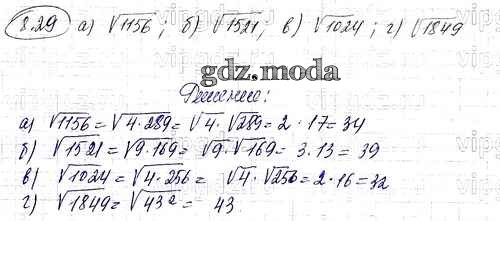 8.29 а) √1156 ; б) √1521; в) √1024 ; г) √1849
gdz.moda
Решение:
а) √1156 = √4·289 = √4·√289 = 2·17 = 34
б) √1521 = √9·169 = √9·√169 = 3·13 = 39
в) √1024 = √4·256 = √4·√256 = 2·16 = 32
г) √1849 = √43² = 43.